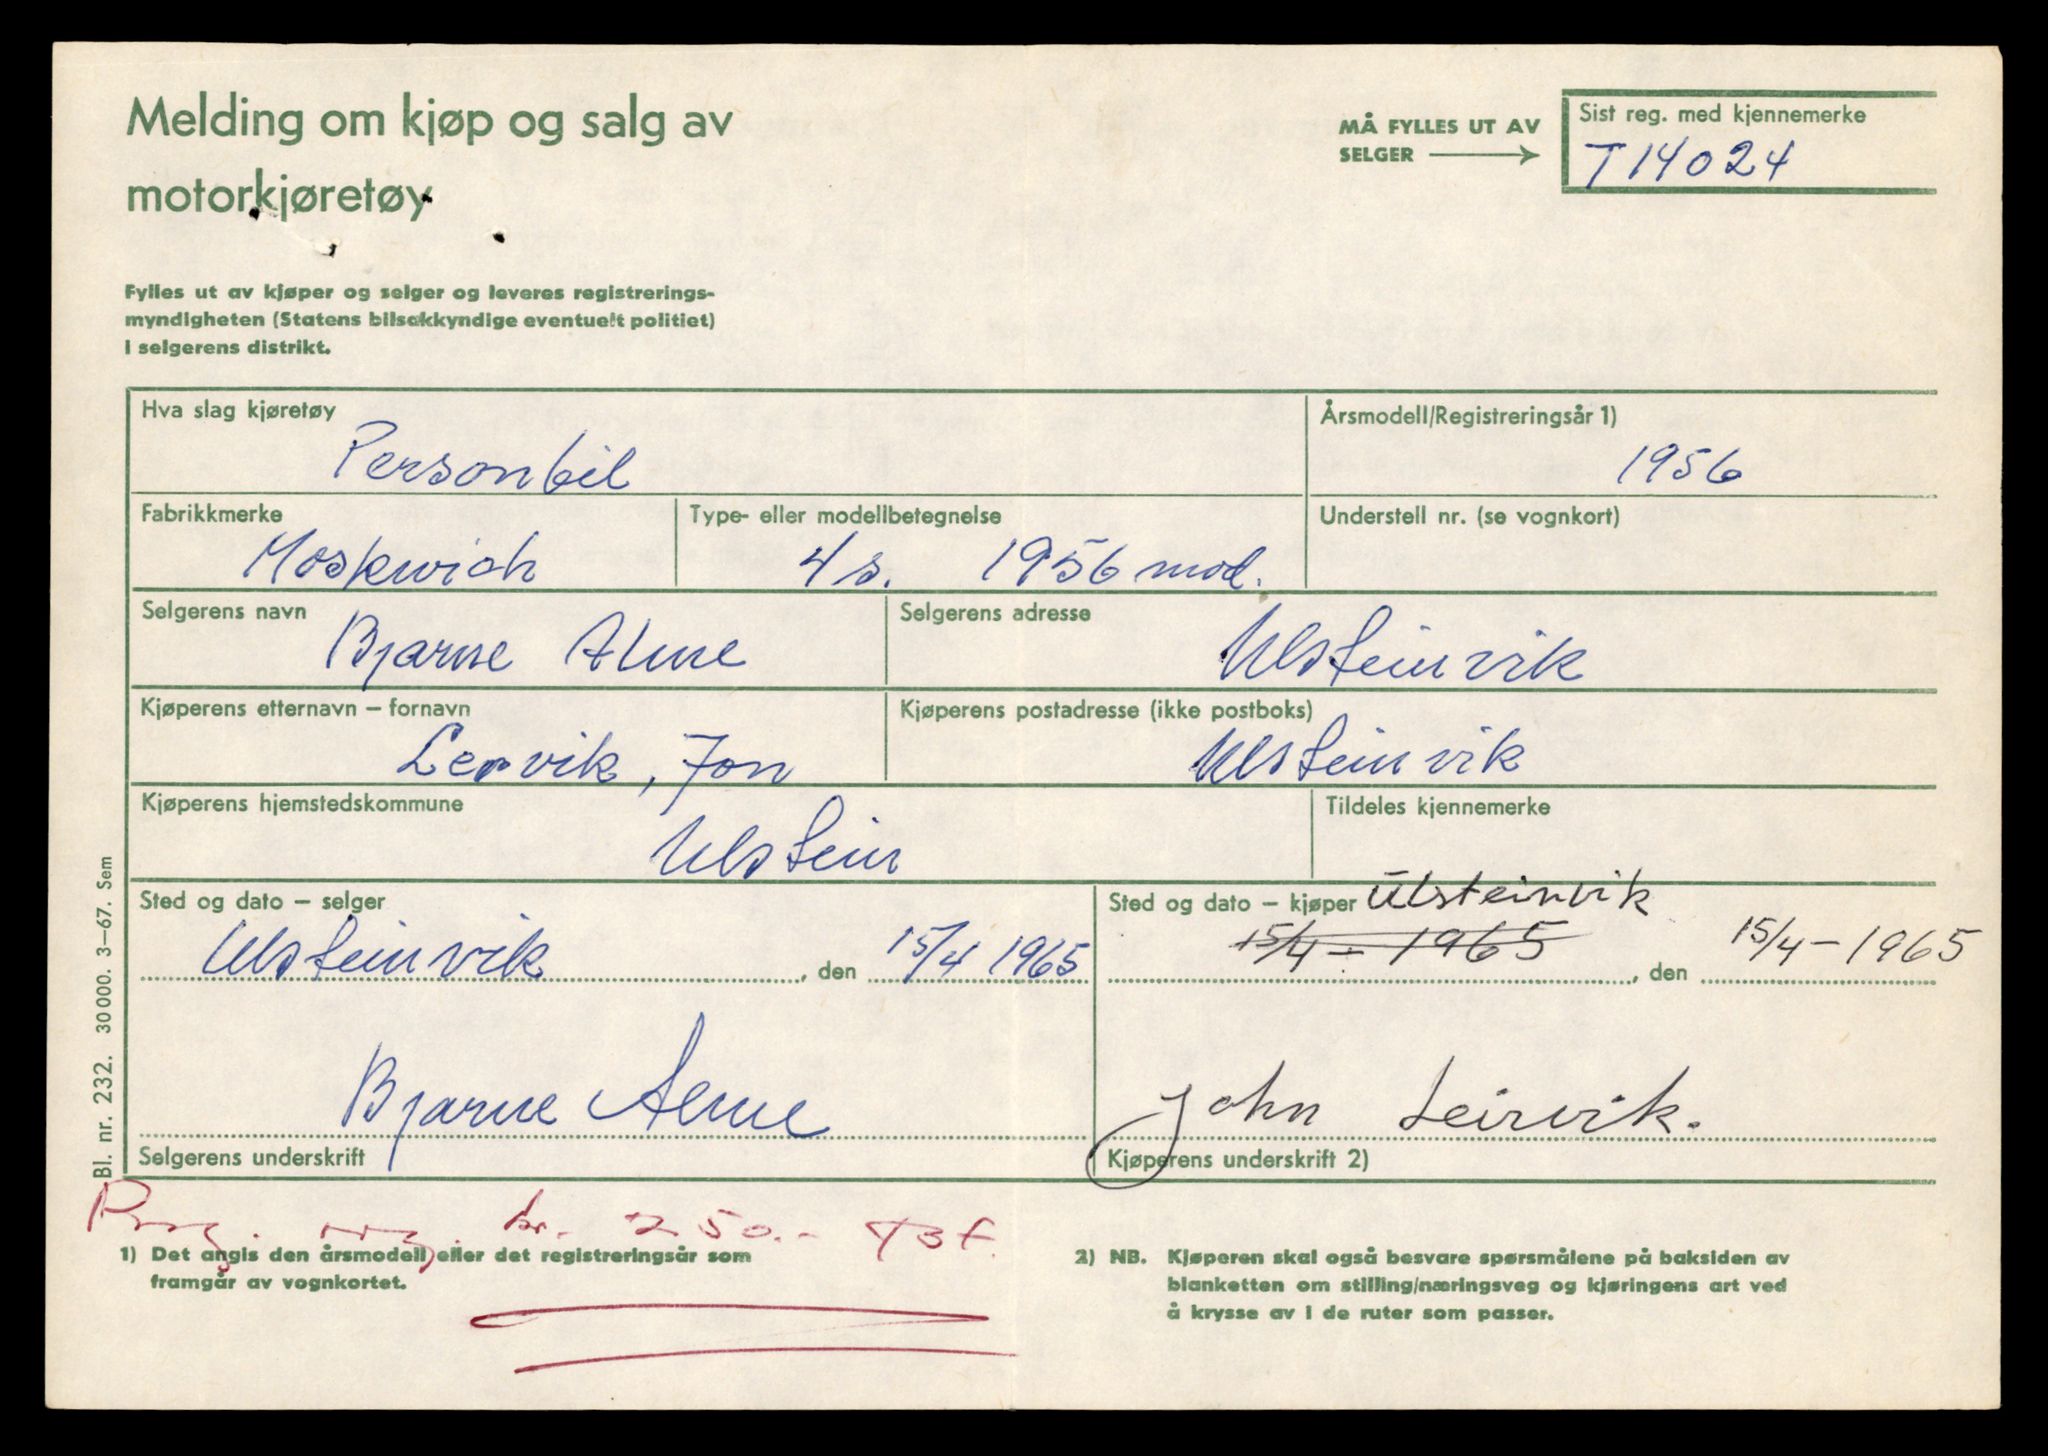 Melding om kjøp og salg av
motorkjøretøy
MÅ FYLLES UT AV
SELGER
Sist reg. med kjennemerke
T14024
Fylles ut av kjøper og selger og leveres registrerings-
myndigheten (Statens bilsakkyndige eventuelt politiet)
i selgerens distrikt.
Hva slag kjøretøy
Personbil
Årsmodell/Registreringsår 1)
1956
Fabrikkmerke
Moskwich
Type- eller modellbetegnelse
4 s. 1956 mod.
Understell nr. (se vognkort)
Selgerens navn
Bjarne Alme
Selgerens adresse
Ulsteinvik
Kjøperens etternavn – fornavn
Lervik, Jon
Kjøperens postadresse (ikke postboks)
Ulsteinvik
Kjøperens hjemstedskommune
Ulstein
Tildeles kjennemerke
Sted og dato – selger
Ulsteinvik, den 15/4 1965
Sted og dato – kjøper Ulsteinvik
15/4 – 1965, den 15/4 – 1965
Bjarne Alme
Selgerens underskrift
John Leirvik.
Kjøperens underskrift 2)
Bl. nr. 232. 30 000. 3–67. Sem
kr. 250.-
1) Det angis den årsmodell eller det registreringsår som
framgår av vognkortet.
2) NB. Kjøperen skal også besvare spørsmålene på baksiden av
blanketten om stilling/næringsveg og kjøringens art ved
å krysse av i de ruter som passer.